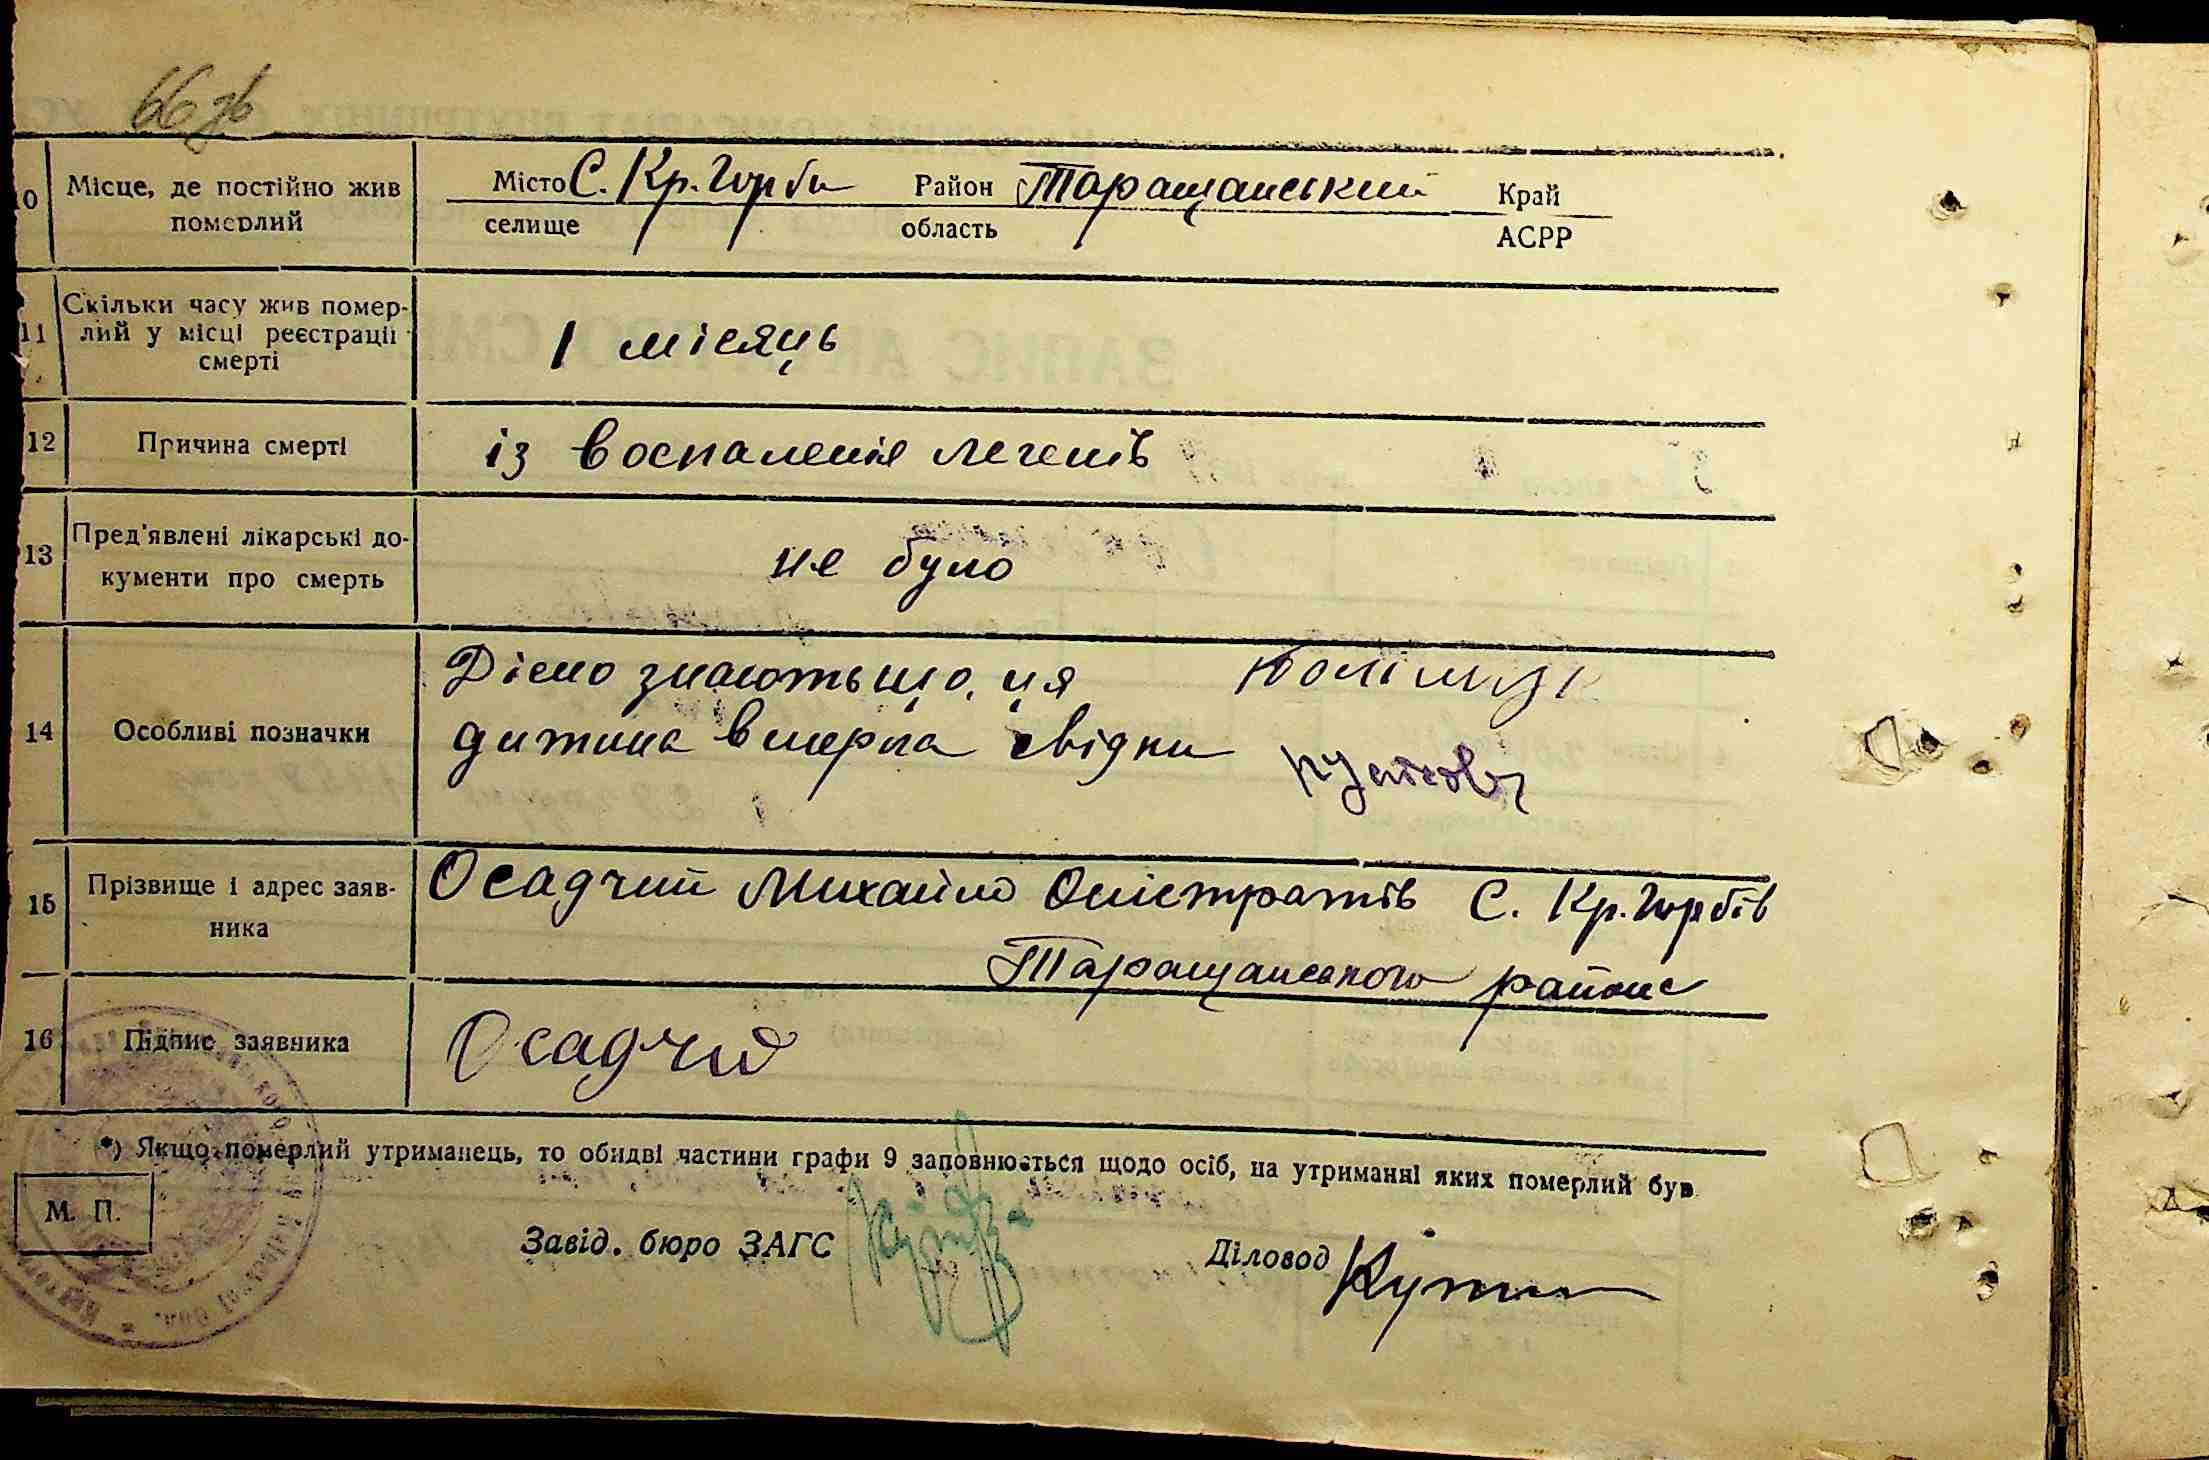 66 зв
10 Місце, де постійно жив померлий
Місто С. Кр. Горби Район Таращанський Край
селище область АСРР
11 Скільки часу жив помер-
лий у місці реєстрації
смерті
1 місяць
12 Причина смерті
із воспаленія легенів
13 Пред'явлені лікарські до-
кументи про смерть
не було
14 Особливі позначки
Дісно знають що, ця
дитина вмерла свідки
15 Прізвище і адрес заяв-
ника
Осадчий Михайло Оністратів С. Кр. Горбів
Таращанського района
16 Підпис заявника
Осадчий
*) Якщо померлий утриманець, то обидві частини графи 9 заповнюється щодо осіб, на утриманні яких померлий був
М. П.
Завід. бюро ЗАГС
Діловод